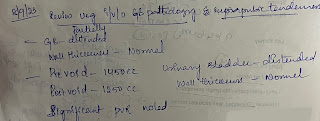 8/9/23 Review usg i/v/o GB pathology & suprapubic tenderness
GB - Partially distended
Wall thickness - Normal
Prevoid - 1450 cc
Urinary bladder - distended
Postvoid - 1250 cc
Wall thickness - Normal
Significant pvr noted